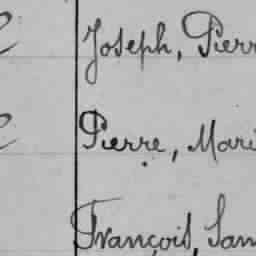 Joseph, Pierr
Pierre, Mari
François, Sam